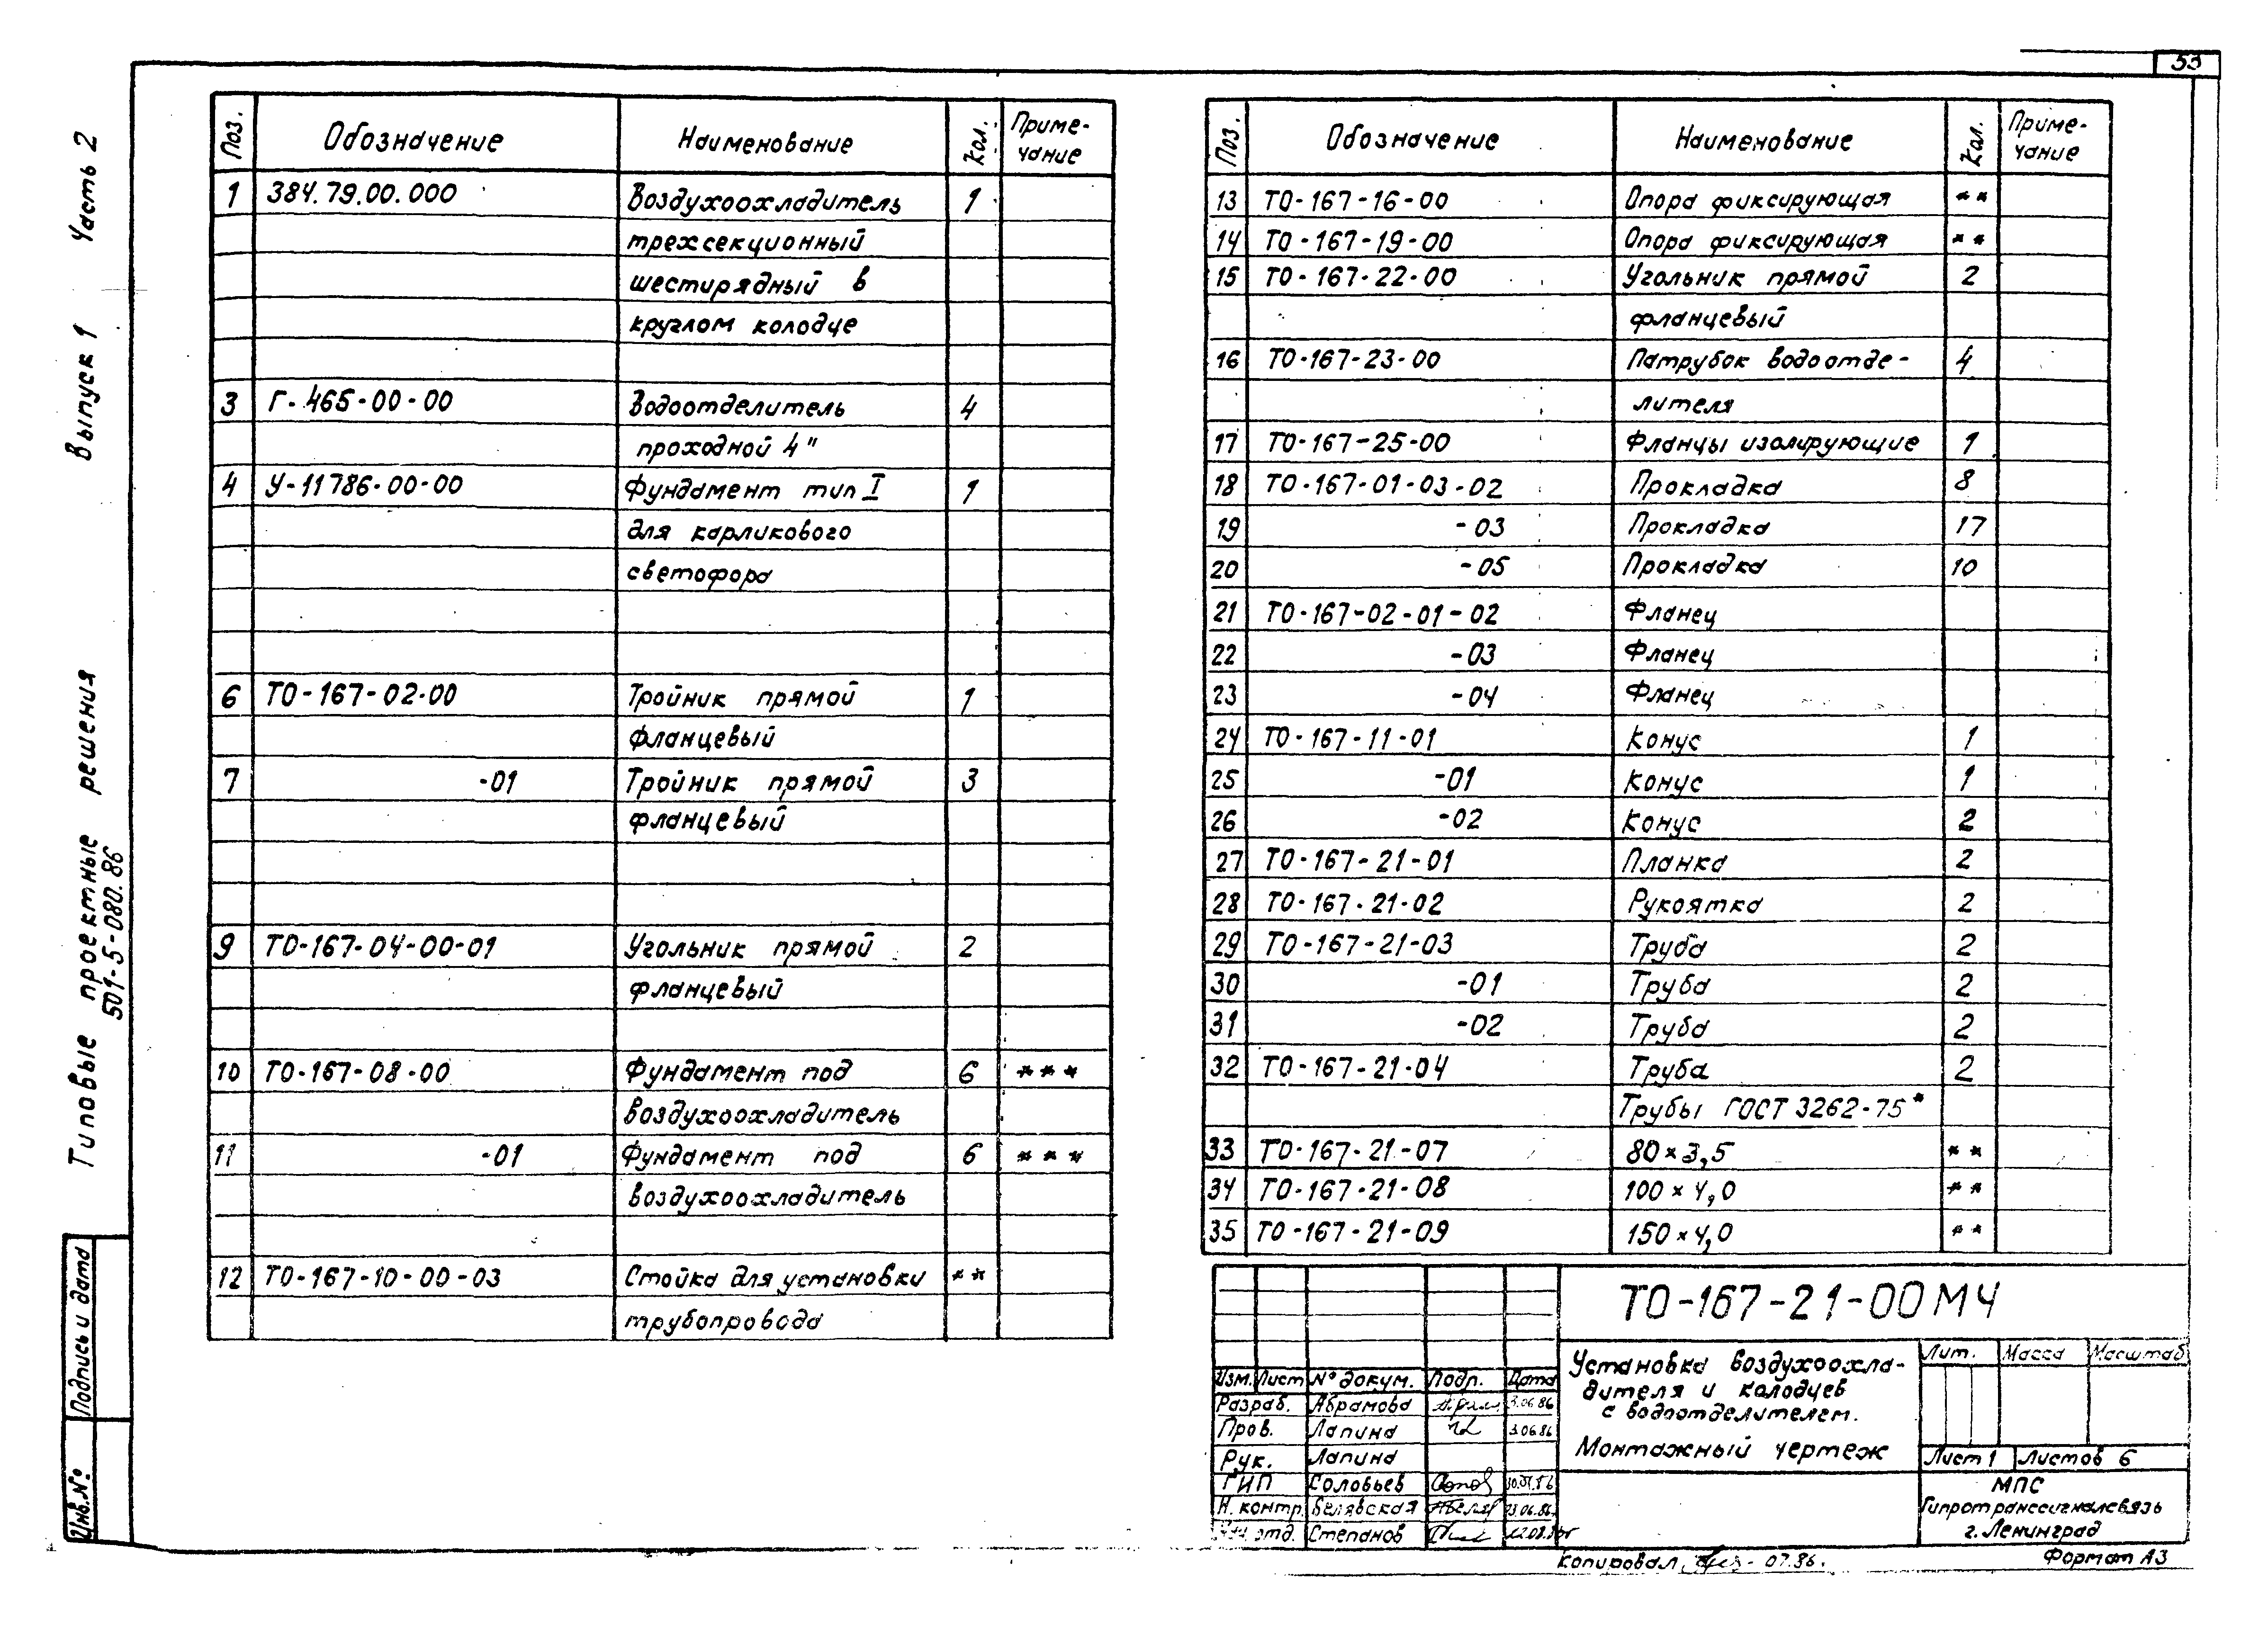 53
Типовые проектные решения Выпуск 1 Часть 2
501-5-080.86
Подпись и дата
Инв.№
Поз. Обозначение Наименование Кол. Приме-
чание
1 384.79.00.000 Воздухоохладитель 1
трехсекционный
шестирядный в
круглом колодце
3 Г-465-00-00 Водоотделитель 4
проходной 4"
4 У-11786-00-00 Фундамент тип I 1
для карликового
светофора
6 ТО-167-02-00 Тройник прямой 1
фланцевый
7 -01 Тройник прямой 3
фланцевый
9 ТО-167-04-00-01 Угольник прямой 2
фланцевый
10 ТО-167-08-00 Фундамент под 6 ***
воздухоохладитель
11 -01 Фундамент под 6 ***
воздухоохладитель
12 ТО-167-10-00-03 Стойка для установки **
трубопровода
Поз. Обозначение Наименование Кол. Приме-
чание
13 ТО-167-16-00 Опора фиксирующая **
14 ТО-167-19-00 Опора фиксирующая **
15 ТО-167-22-00 Угольник прямой 2
фланцевый
16 ТО-167-23-00 Патрубок водоотде- 4
лителя
17 ТО-167-25-00 Фланцы изолирующие 1
18 ТО-167-01-03-02 Прокладка 8
19 -03 Прокладка 17
20 -05 Прокладка 10
21 ТО-167-02-01-02 Фланец
22 -03 Фланец
23 -04 Фланец
24 ТО-167-11-01 Конус 1
25 -01 Конус 1
26 -02 Конус 2
27 ТО-167-21-01 Планка 2
28 ТО-167-21-02 Рукоятка 2
29 ТО-167-21-03 Труба 2
30 -01 Труба 2
31 -02 Труба 2
32 ТО-167-21-04 Труба 2
Трубы ГОСТ 3262-75*
33 ТО-167-21-07 80×3,5 **
34 ТО-167-21-08 100×4,0 **
35 ТО-167-21-09 150×4,0 **
ТО-167-21-00МЧ
Установка воздухоохла-
дителя и колодцев
с водоотделителем.
Монтажный чертеж
Лит. Масса Масштаб
Лист 1 Листов 6
МПС
Гипротранссигналсвязь
г. Ленинград
Изм. Лист № докум. Подр. Дата
Разраб. Абрамова 3.06.86
Пров. Лапина 3.06.86
Рук. Лапина
ГИП Соловьев
Н.контр. Белявская 23.06.86
отд. Степанов
Копировал 07.86.
Формат А3